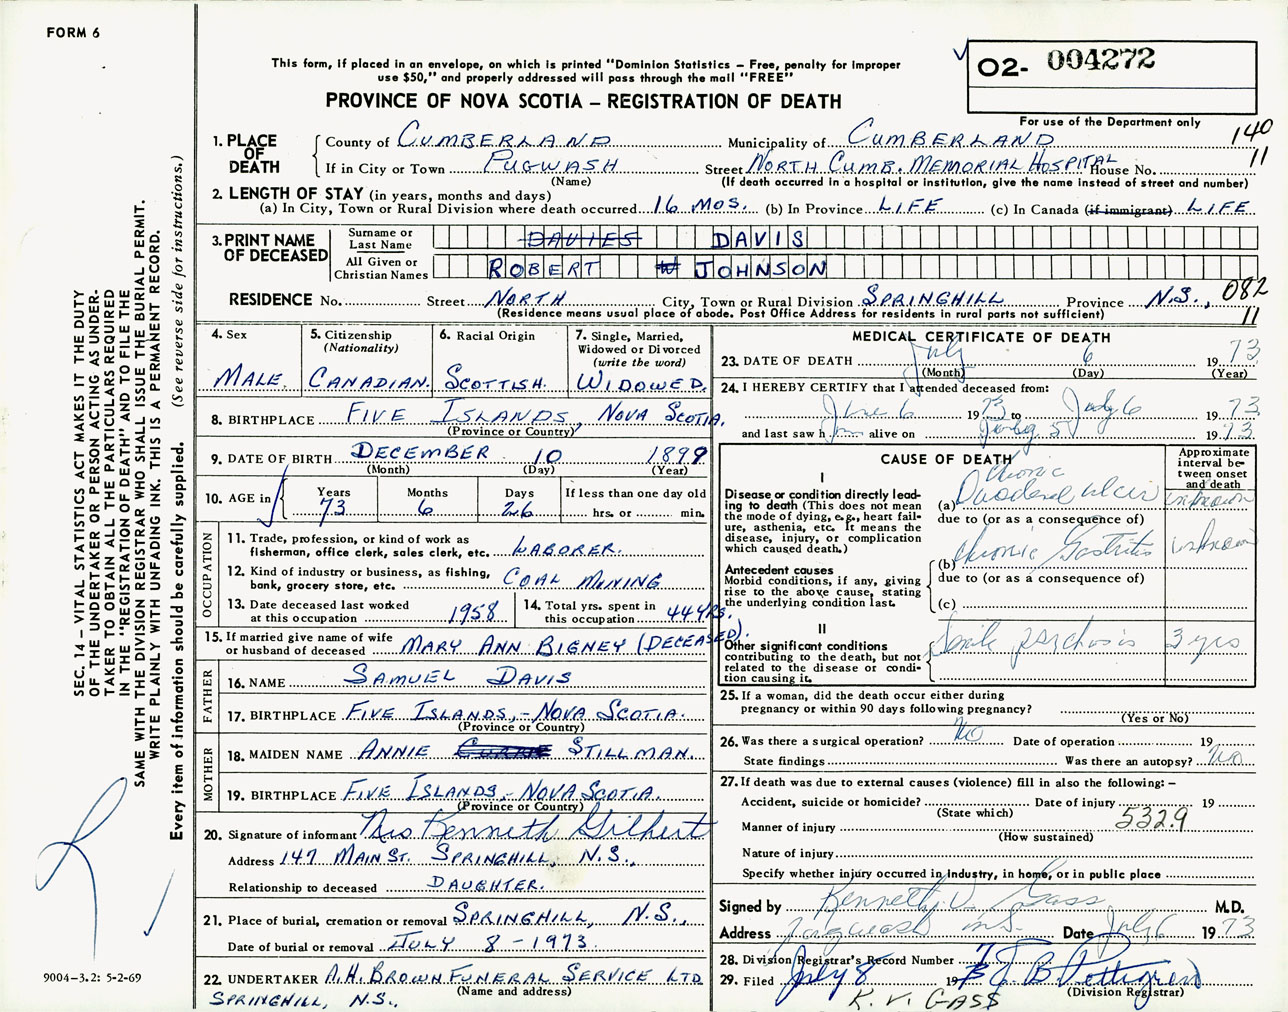 FORM 6
This form, if placed in an envelope, on which is printed "Dominion Statistics – Free, penalty for improper
use $50," and properly addressed will pass through the mail "FREE"
PROVINCE OF NOVA SCOTIA – REGISTRATION OF DEATH
O2- 004272
For use of the Department only
1. PLACE OF DEATH
County of CUMBERLAND Municipality of CUMBERLAND 140
If in City or Town PUGWASH Street NORTH CUMB. MEMORIAL HOSPITAL House No. 11
(Name) (If death occurred in a hospital or institution, give the name instead of street and number)
2. LENGTH OF STAY (in years, months and days)
(a) In City, Town or Rural Division where death occurred 16 MOS. (b) In Province LIFE (c) In Canada (if immigrant) LIFE
3. PRINT NAME OF DECEASED
Surname or Last Name DAVIES DAVIS
All Given or Christian Names ROBERT W JOHNSON
RESIDENCE No. Street NORTH City, Town or Rural Division SPRINGHILL Province N.S., 082
(Residence means usual place of abode. Post Office Address for residents in rural parts not sufficient) 11
4. Sex MALE
5. Citizenship (Nationality) CANADIAN.
6. Racial Origin SCOTTISH.
7. Single, Married, Widowed or Divorced (write the word) WIDOWED.
8. BIRTHPLACE FIVE ISLANDS, NOVA SCOTIA.
(Province or Country)
9. DATE OF BIRTH DECEMBER 10 1899
(Month) (Day) (Year)
10. AGE in Years 73 Months 6 Days 26 If less than one day old
hrs. or min.
OCCUPATION
11. Trade, profession, or kind of work as
fisherman, office clerk, sales clerk, etc. LABORER.
12. Kind of industry or business, as fishing,
bank, grocery store, etc. COAL MINING
13. Date deceased last worked
at this occupation 1958
14. Total yrs. spent in
this occupation 44 YRS.
15. If married give name of wife
or husband of deceased MARY ANN BIGNEY (DECEASED).
FATHER
16. NAME SAMUEL DAVIS
17. BIRTHPLACE FIVE ISLANDS, – NOVA SCOTIA.
(Province or Country)
MOTHER
18. MAIDEN NAME ANNIE STILLMAN.
19. BIRTHPLACE FIVE ISLANDS, – NOVA SCOTIA.
(Province or Country)
20. Signature of informant Mrs Kenneth Gilbert
Address 147 MAIN ST. SPRINGHILL, N.S.,
Relationship to deceased DAUGHTER.
21. Place of burial, cremation or removal SPRINGHILL, N.S.,
Date of burial or removal JULY 8 – 1973
22. UNDERTAKER A.H. BROWN FUNERAL SERVICE LTD
(Name and address)
SPRINGHILL, N.S.,
MEDICAL CERTIFICATE OF DEATH
23. DATE OF DEATH July 6 1973
(Month) (Day) (Year)
24. I HEREBY CERTIFY that I attended deceased from:
June 6 1973 to July 6 1973
and last saw him alive on July 5 1973
CAUSE OF DEATH
Approximate interval between onset and death
I
Disease or condition directly leading to death (This does not
mean the mode of dying, e.g., heart failure, asthenia, etc. It means the
disease, injury, or complication
which caused death.)
(a) Chronic Duodenal ulcer unknown
due to (or as a consequence of)
Antecedent causes
Morbid conditions, if any, giving
rise to the above cause, stating
the underlying condition last.
(b) Chronic Gastritis unknown
due to (or as a consequence of)
(c)
II
Other significant conditions
contributing to the death, but not
related to the disease or condition causing it.
Senile psychosis 3 yrs
25. If a woman, did the death occur either during
pregnancy or within 90 days following pregnancy?
(Yes or No)
26. Was there a surgical operation? No Date of operation 19
State findings Was there an autopsy? No
27. If death was due to external causes (violence) fill in also the following: –
Accident, suicide or homicide? Date of injury 19
(State which)
Manner of injury 532.9
(How sustained)
Nature of injury
Specify whether injury occurred in industry, in home, or in public place
Signed by Kenneth V. Gass M.D.
Address Pugwash N.S. Date July 6 1973
28. Division Registrar's Record Number 7
29. Filed July 8 19
(Division Registrar)
K. V. GASS
SEC. 14 – VITAL STATISTICS ACT MAKES IT THE DUTY
OF THE UNDERTAKER OR PERSON ACTING AS UNDER-
TAKER TO OBTAIN ALL THE PARTICULARS REQUIRED
IN THE "REGISTRATION OF DEATH" AND TO FILE THE
SAME WITH THE DIVISION REGISTRAR WHO SHALL ISSUE THE BURIAL PERMIT.
WRITE PLAINLY WITH UNFADING INK. THIS IS A PERMANENT RECORD.
Every item of information should be carefully supplied. (See reverse side for instructions.)
9004-3.2: 5-2-69